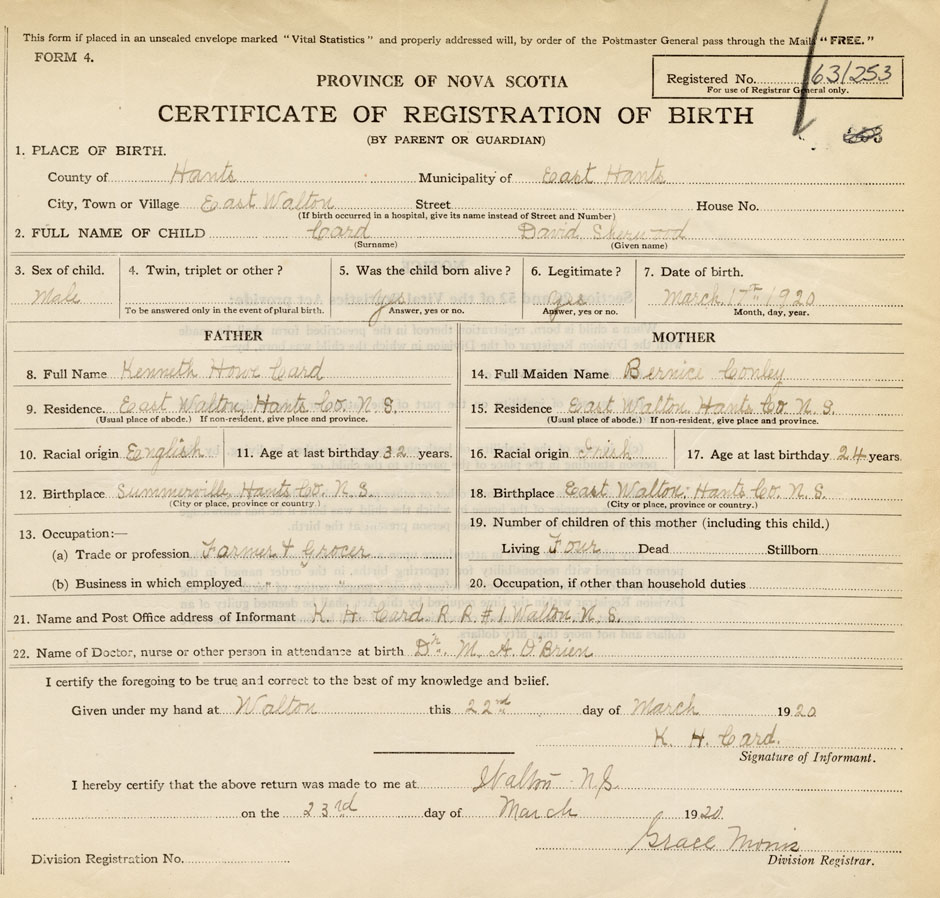 This form if placed in an unsealed envelope marked "Vital Statistics" and properly addressed will, by order of the Postmaster General pass through the Mail "FREE."
FORM 4.
Registered No. 631253
For use of Registrar General only.
PROVINCE OF NOVA SCOTIA
CERTIFICATE OF REGISTRATION OF BIRTH
(BY PARENT OR GUARDIAN)
1. PLACE OF BIRTH.
County of Hants Municipality of East Hants
City, Town or Village East Walton Street House No.
(If birth occurred in a hospital, give its name instead of Street and Number)
2. FULL NAME OF CHILD Card David Sherwood
(Surname) (Given name)
3. Sex of child. 4. Twin, triplet or other? 5. Was the child born alive? 6. Legitimate? 7. Date of birth.
Male Yes Yes March 17th 1920
To be answered only in the event of plural birth. Answer, yes or no. Answer, yes or no. Month, day, year.
FATHER MOTHER
8. Full Name Kenneth Howe Card 14. Full Maiden Name Bernice Conley
9. Residence. East Walton, Hants Co. N. S. 15. Residence East Walton Hants Co. N. S.
(Usual place of abode.) If non-resident, give place and province. (Usual place of abode.) If non-resident, give place and province.
10. Racial origin English 11. Age at last birthday 32 years. 16. Racial origin Irish 17. Age at last birthday 24 years.
12. Birthplace Summerville, Hants Co. N. S. 18. Birthplace East Walton, Hants Co. N. S.
(City or place, province or country.) (City or place, province or country.)
13. Occupation:— 19. Number of children of this mother (including this child.)
(a) Trade or profession Farmer & Grocer Living Four Dead Stillborn
(b) Business in which employed " " 20. Occupation, if other than household duties
21. Name and Post Office address of Informant K. H. Card R R #1 Walton, N. S.
22. Name of Doctor, nurse or other person in attendance at birth Dr. M. A. O'Brien
I certify the foregoing to be true and correct to the best of my knowledge and belief.
Given under my hand at Walton this 22nd day of March 1920
K. H. Card.
Signature of Informant.
I hereby certify that the above return was made to me at Walton N.S.
on the 23rd day of March 1920.
Grace Morris
Division Registration No. Division Registrar.